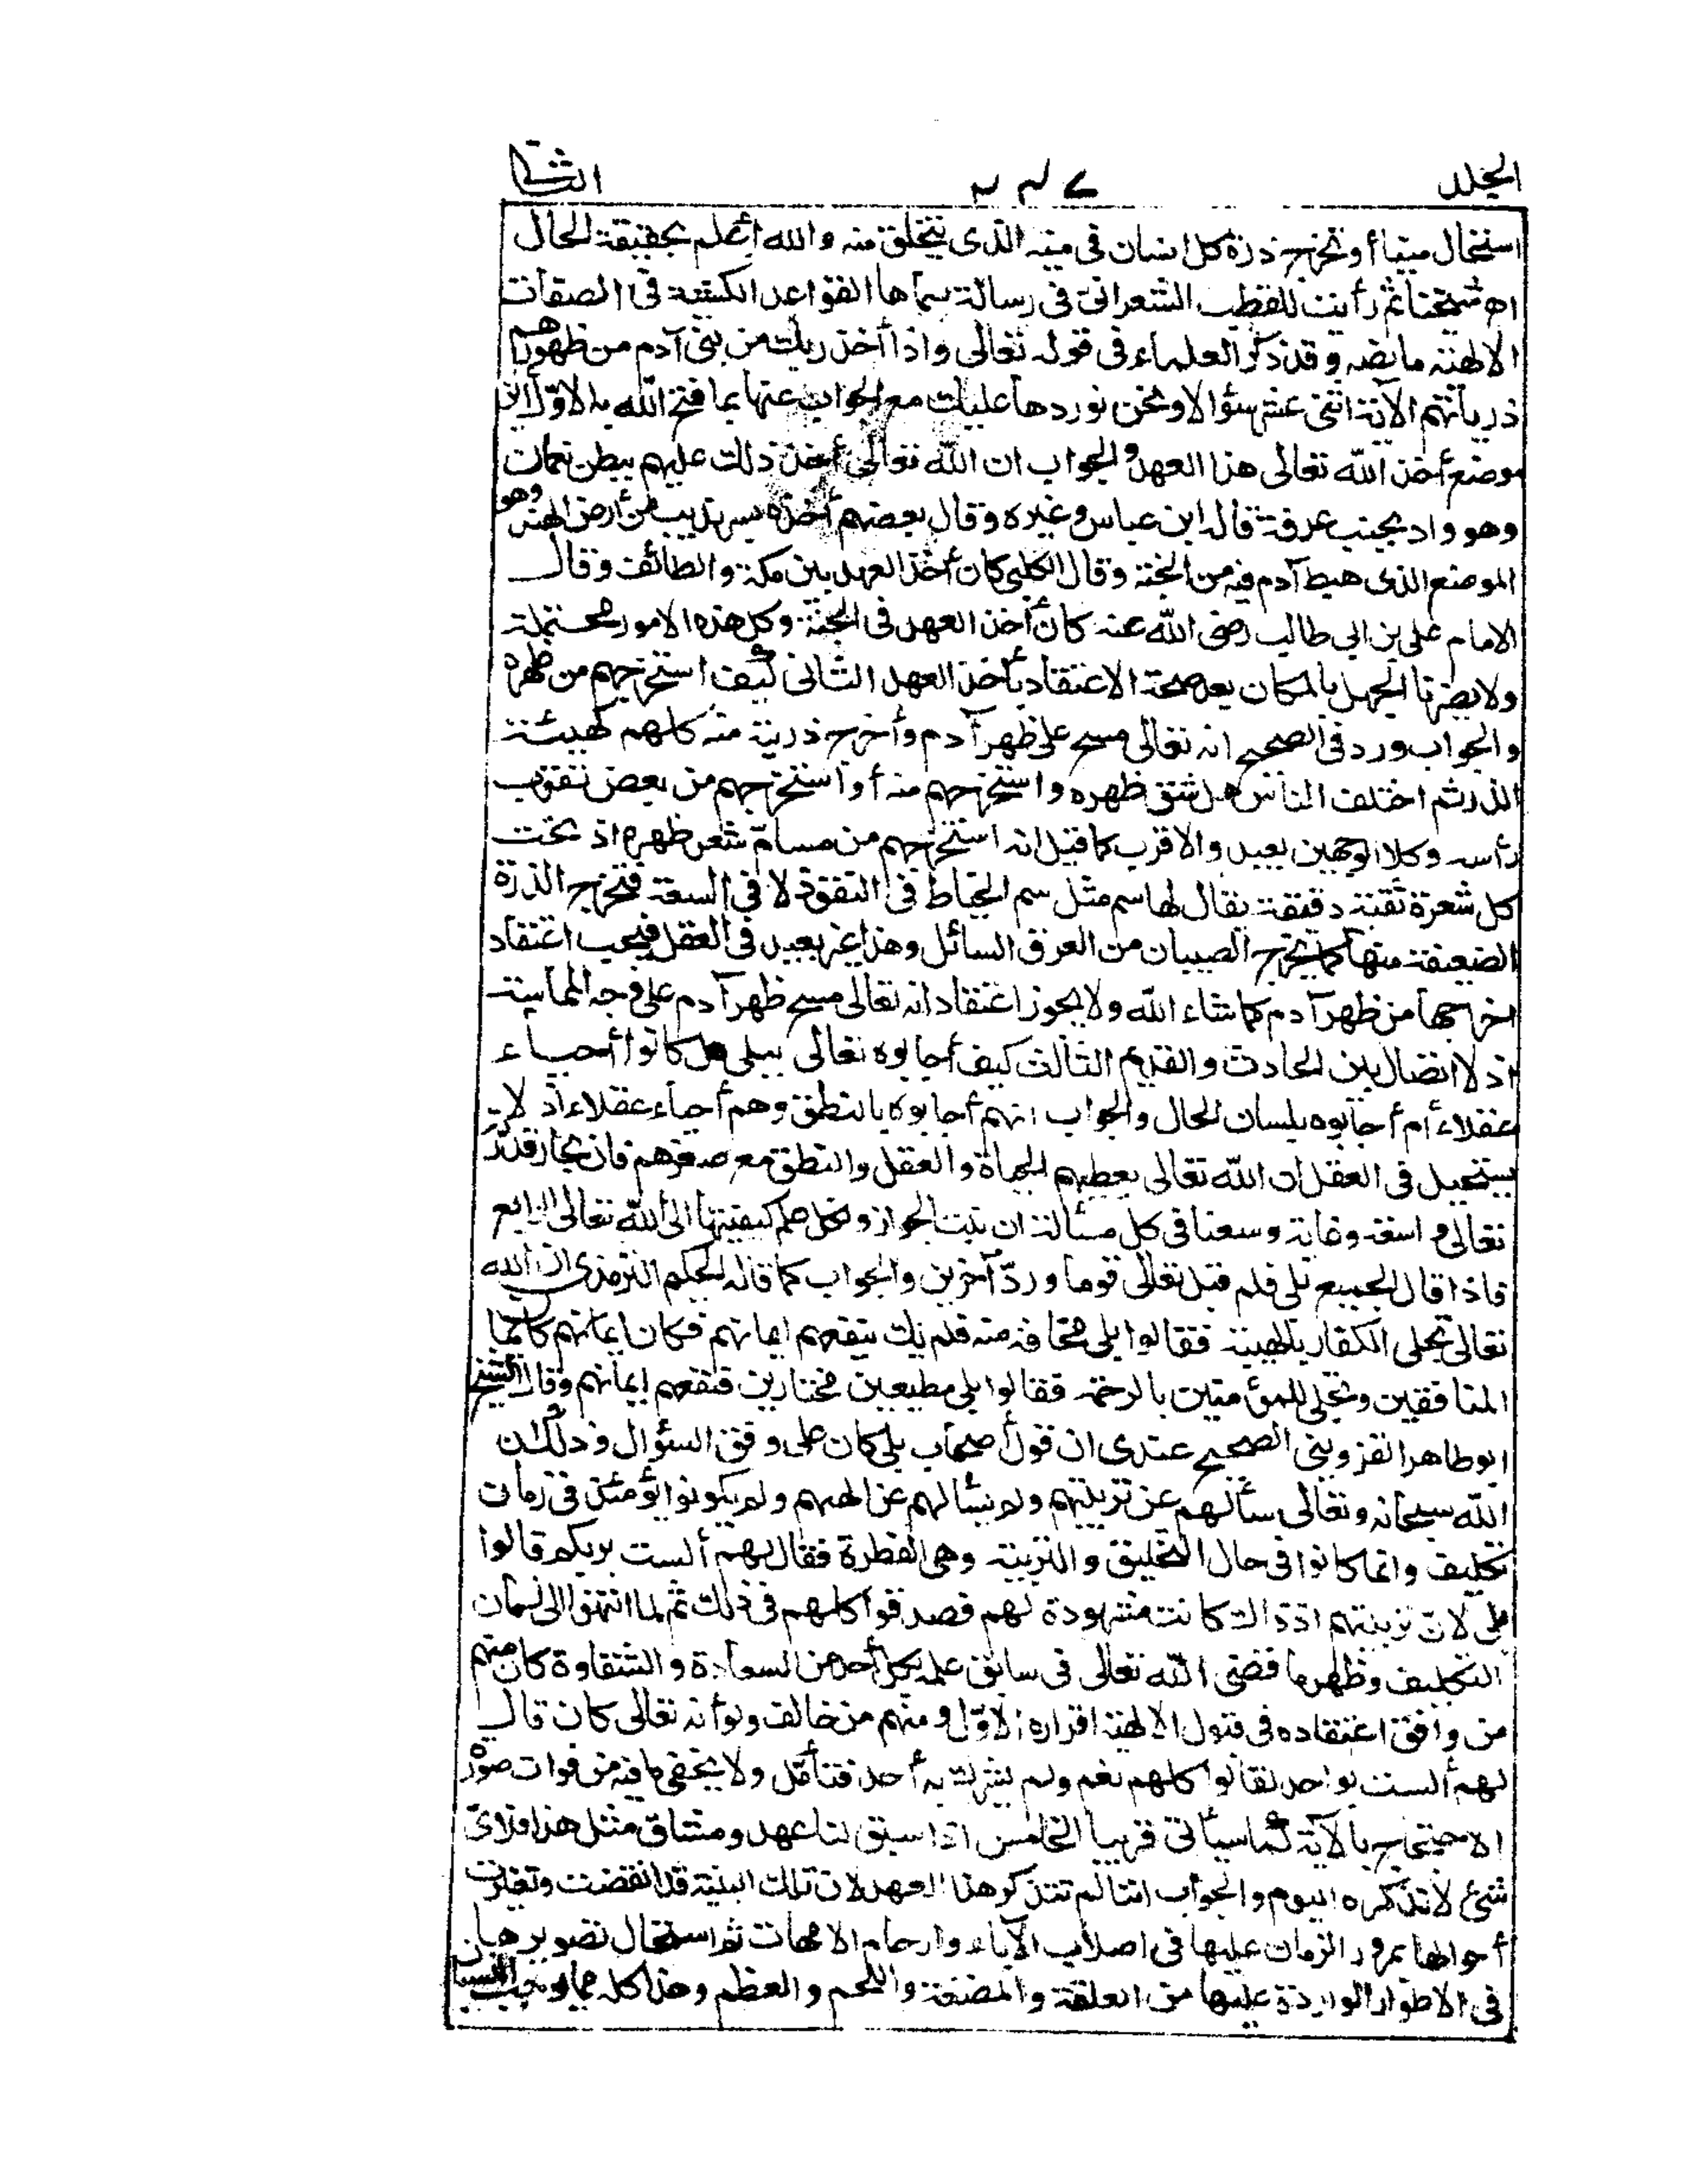 المجلد ٢٣٧ الثانى
استحال منيا أو تخرج ذرة كل انسان فى منيه الذى يتخلق منه والله أعلم بحقيقة الحال
اه شيخنا ثم رأيت للقطب الشعرانى فى رسالة سماها القواعد الكشفية فى الصفات
الالهية ما نصه وقد ذكر العلماء فى قوله تعالى واذ أخذ ربك من بنى آدم من ظهورهم
ذرياتهم الآية اثنى عشر سؤالا ونحن نوردها عليك مع الجواب عنها بما فتح الله به الاول أين
موضع أخذ الله تعالى هذا العهد والجواب ان الله تعالى أخذ ذلك عليهم ببطن نعمان
وهو واد بجنب عرفة قاله ابن عباس وغيره وقال بعضهم أخذه بسرنديب من أرض الهند وهو
الموضع الذى هبط آدم فيه من الجنة وقال الكلبى كان أخذ العهد بين مكة والطائف وقال
الامام على بن ابى طالب رضى الله عنه كان أخذ العهد فى الجنة وكل هذه الامور محتملة
ولا يضرنا الجهل بالمكان بعد صحة الاعتقاد بأخذ العهد الثانى كيف استخرجهم من ظهره
والجواب ورد فى الصحيح انه تعالى مسح على ظهر آدم وأخرج ذريته منه كلهم كهيئة
الذر ثم اختلف الناس هل شق ظهره واستخرجهم منه أو استخرجهم من بعض ثقوب
رأسه وكلا الوجهين بعيد والاقرب كما قيل انه استخرجهم من مسام شعر ظهره اذ تحت
كل شعرة ثقبة دقيقة يقال لها سم مثل سم الخياط فى النفوذ لا فى السعة فتخرج الذرة
الضعيفة منها كما يخرج الصيبان من العرق السائل وهذا غير بعيد فى العقل فيجب اعتقاد
اخراجها من ظهر آدم كما شاء الله ولا يجوز اعتقاد انه تعالى مسح ظهر آدم على وجه المماسة
اذ لا اتصال بين الحادث والقديم الثالث كيف أجابوه تعالى ببلى هل كانوا أحياء
عقلاء أم أجابوه بلسان الحال والجواب انهم أجابوه بالنطق وهم أحياء عقلاء اذ لا
يستحيل فى العقل ان الله تعالى يعطيهم الحياة والعقل والنطق مع صغرهم فان بحار قدرته
تعالى واسعة وغاية وسعنا فى كل مسألة ان نثبت الجواز ونكل علم كيفيتها الى الله تعالى الرابع
فاذا قال الجميع بلى فلم قبل تعالى قوما ورد آخرين والجواب كما قاله الحكيم الترمذى ان الله
تعالى تجلى للكفار بالهيبة فقالوا بلى مخافة منه فلم يك ينفعهم ايمانهم فكان ايمانهم كايمان
المنافقين وتجلى للمؤمنين بالرحمة فقالوا بلى مطيعين مختارين فنفعهم ايمانهم وقال الشيخ
ابو طاهر القزوينى الصحيح عندى ان قول أصحاب بلى كان على وفق السؤال وذلك ان
الله سبحانه وتعالى سألهم عن تربيتهم ولم يسألهم عن الههم ولم يكونوا يومئذ فى زمان
تكليف وانما كانوا فى حال التخليق والتربية وهى الفطرة فقال لهم ألست بربكم قالوا
بلى لان تربيتهم اذ ذاك كانت مشهودة لهم فصدقوا كلهم فى ذلك ثم لما انتهوا الى زمان
التكليف وظهر ما قضى الله تعالى فى سابق علمه لكل أحد من السعادة والشقاوة كان منهم
من وافق اعتقاده فى قبول الالهية اقراره الاول ومنهم من خالف ولو أنه تعالى كان قال
لهم ألست بواحد لقالوا كلهم نعم ولم يشرك به أحد فتأمل ولا يخفى ما فيه من فوات صور
الاحتجاج بالآية كما سيأتى قريبا الخامس اذا سبق لنا عهد وميثاق مثل هذا فلأى
شئ لا نتذكره اليوم والجواب اننا لم نتذكر هذا العهد لان تلك البنية قد انقضت وتغيرت
أحوالها بمرور الزمان عليها فى اصلاب الآباء وارحام الامهات ثم استحال تصويرها
فى الاطوار الواردة عليها من العلقة والمضغة واللحم والعظم وهذا كله مما يوجب النسيان